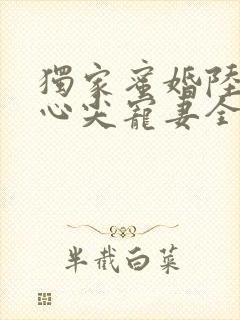 獨家蜜婚陸
心尖寵妻全
半截白菜